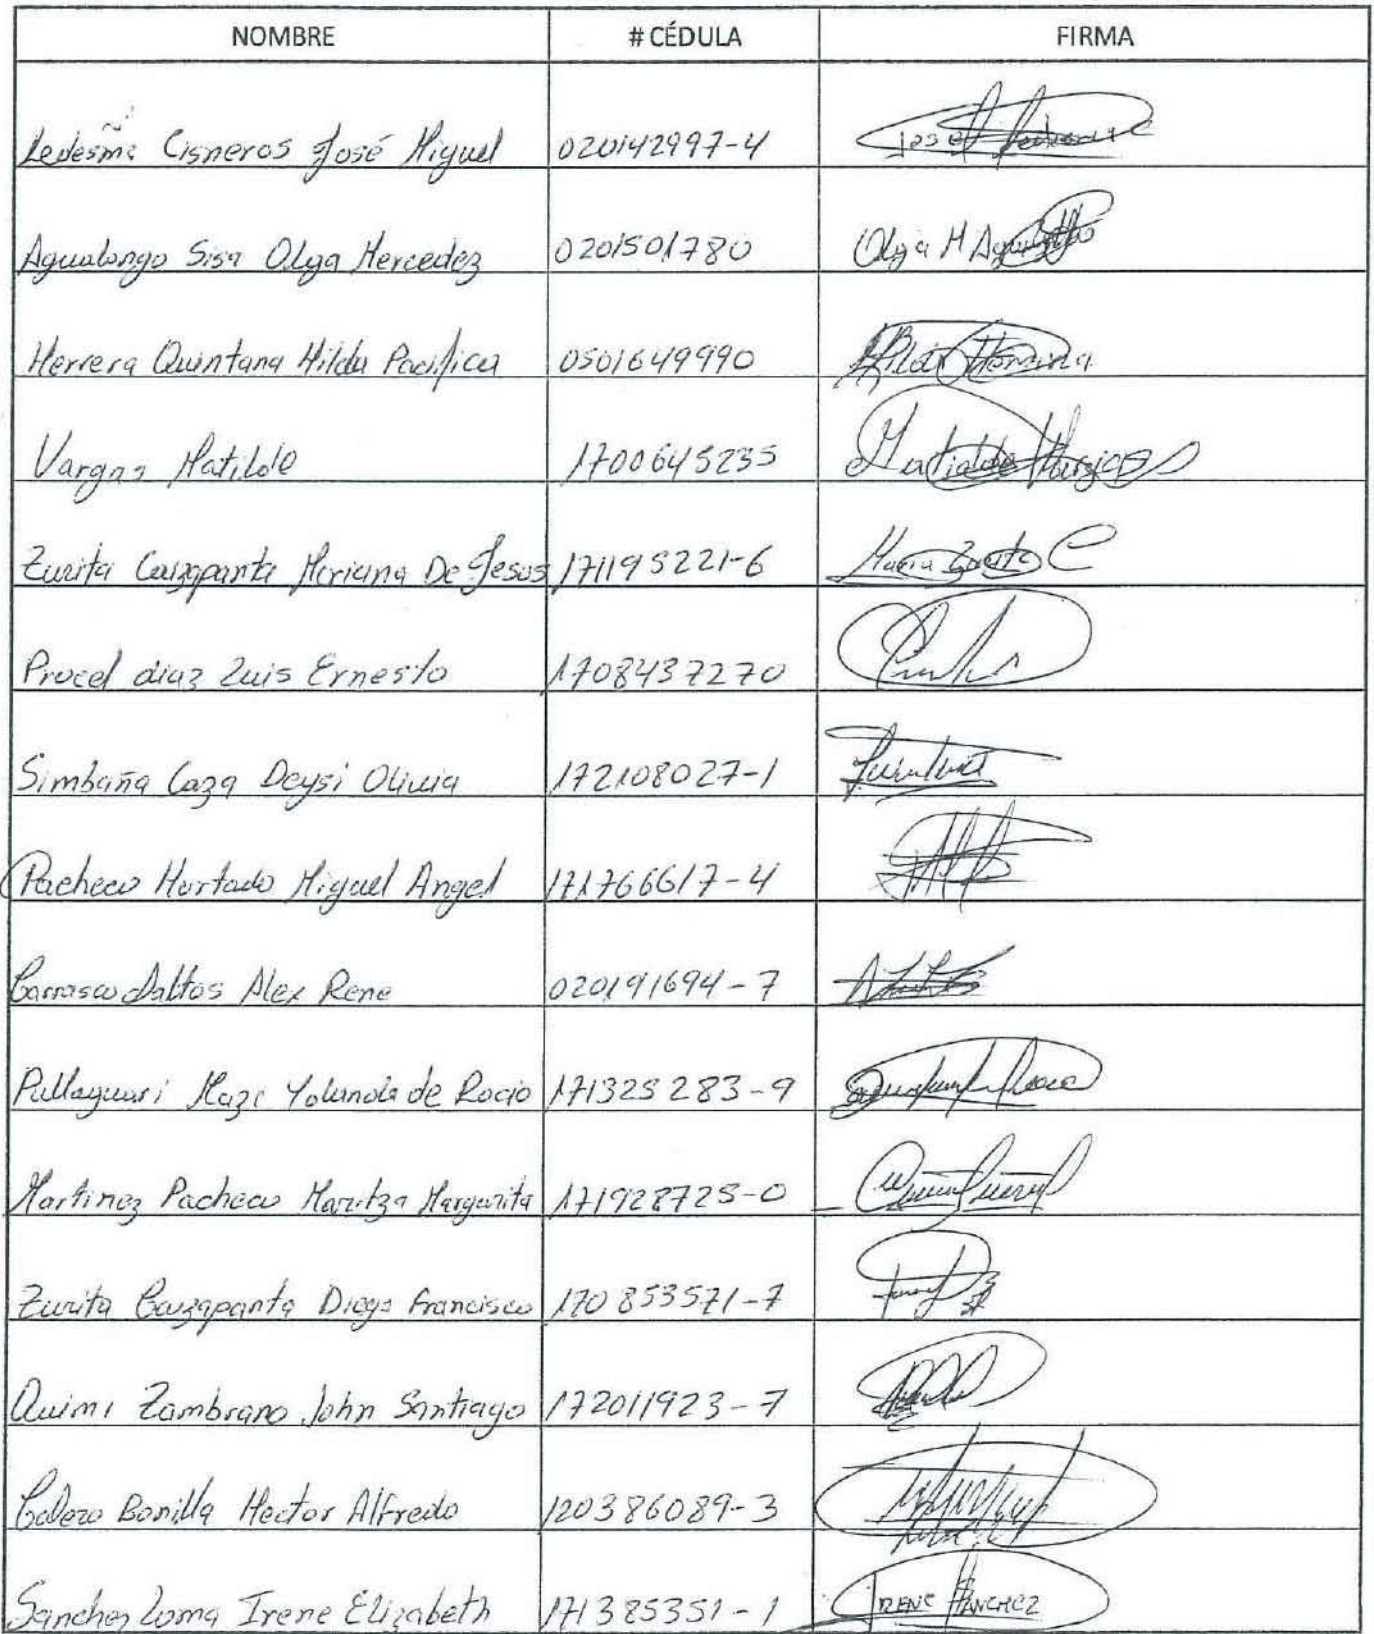 NOMBRE # CÉDULA FIRMA
Ledesma Cisneros José Miguel 020142997-4
Agualongo Sisa Olga Mercedez 0201501780 Olga M
Herrera Quintana Hilda Pacifica 0501649990
Vargas Matilde 1700645235 Matilde Vargas
Zurita Caizapanta Mariana De Jesus 171195221-6 Maria Zurita C
Procel diaz Luis Ernesto 1708437270
Simbaña Caza Deysi Olivia 172108027-1
Pacheco Hurtado Miguel Angel 171766617-4
Carrasco Alex Rene 020191694-7
Pullaguari Maza Yolanda de Rocio 171325283-9
Martinez Pacheco Maritza Margarita 171928725-0
Zurita Caizapanta Diego Francisco 170853571-7
Quimi Zambrano John Santiago 172011923-7
Calero Bonilla Hector Alfredo 120386089-3
Sanchez Loma Irene Elizabeth 171385351-1 IRENE SANCHEZ